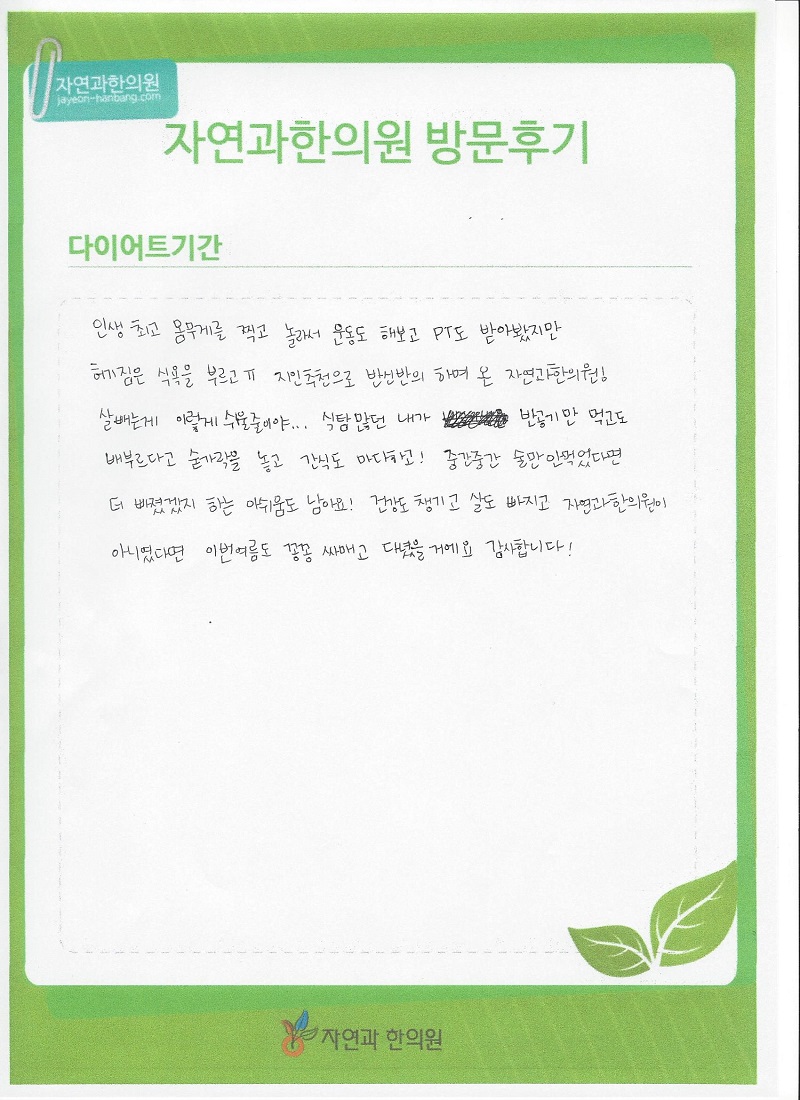 자연과한의원
jayeon-hanbang.com
자연과한의원 방문후기
다이어트기간
인생 최고 몸무게를 찍고 놀라서 운동도 해보고 PT도 받아봤지만
허기짐은 식욕을 부르고ㅠ 지인추천으로 반신반의 하며 온 자연과한의원!
살빼는게 이렇게 수월줄이야... 식탐많던 내가 반공기만 먹고도
배부르다고 숟가락을 놓고 간식도 마다하고! 중간중간 술만안먹었다면
더 빠졌겠지 하는 아쉬움도 남아요! 건강도 챙기고 살도 빠지고 자연과한의원이
아니였다면 이번여름도 꽁꽁 싸매고 다녔을거에요 감사합니다!
자연과 한의원